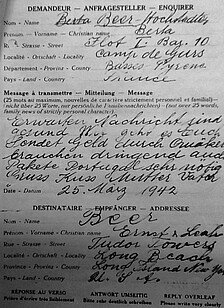 DEMANDEUR — ANFRAGESTELLER — ENQUIRER
Nom - Name Berta Beer-Hochstädter
Prénom - Vorname - Christian name Berta
Rue - Strasse - Street Ilot I. Bar. 10
Localité - Ortschaft - Locality Camp de Gurs
Département - Provinz - County Basses Pyrene
Pays - Land - Country France
Message à transmettre — Mitteilung — Message
(25 mots au maximum, nouvelles de caractère strictement personnel et familial) —
(nicht über 25 Worte, nur persönliche Familiennachrichten) — (not over 25 words, family news of strictly personal character).
Erwarten Nachricht sind
gesund. Wie geht es Euch
Sendet Geld durch Quäker
brauchen dringend auch
Pakete Portugal sehr
Gruss Kuss Mutter Vater
Date - Datum 25. März 1942
DESTINATAIRE — EMPFÄNGER — ADDRESSEE
Nom - Name Beer
Prénom - Vorname - Christian name Ernst
Rue - Strasse - Street Tudor Towers
Localité - Ortschaft - Locality Long Beach
Province - Provinz - County Long Island New York
Pays - Land - Country
RÉPONSE AU VERSO ANTWORT UMSEITIG REPLY OVERLEAF
Prière d'écrire très lisiblement Bitte sehr deutlich schreiben